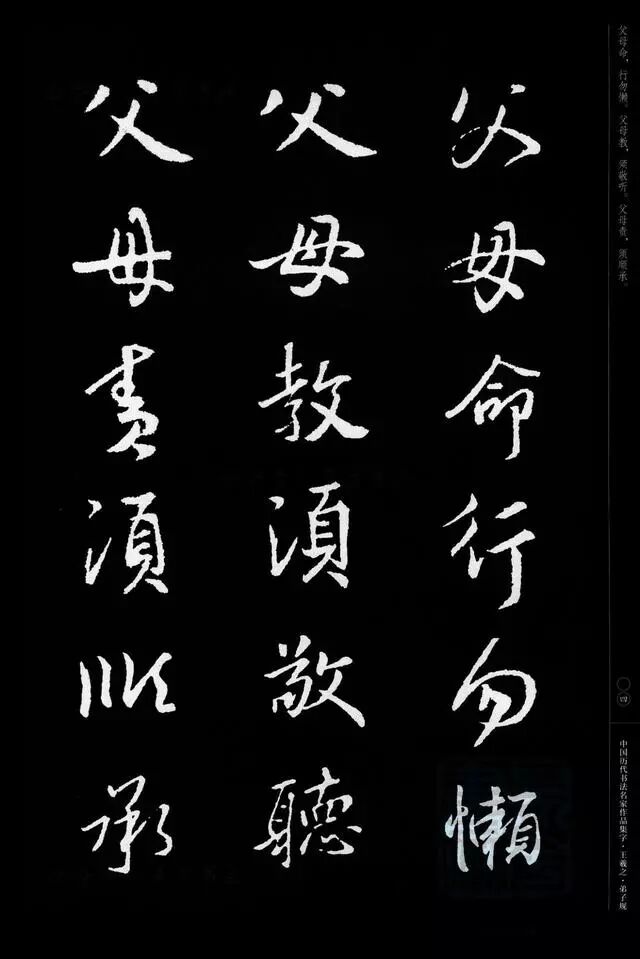 父母命行勿懶
父母教須敬聽
父母責須順承
父母命，行勿懒。父母教，须敬听。父母责，须顺承。
〇四
中国历代书法名家作品集字·王羲之·弟子规